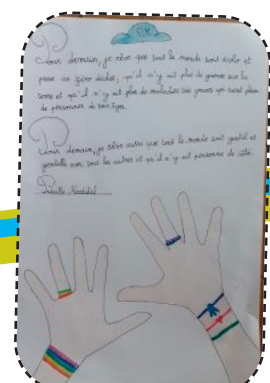 Pour demain, je rêve que tout le monde soit écolo et
passe au zéro déchet, qu'il n'y ait plus de guerre sur la
terre et qu'il n'y ait plus de maladies très graves qui tuent plein
de personnes de tous âges.
Pour demain, je rêve aussi que tout le monde soit gentil et
gentille avec tous les autres et qu'il n'y ait personne de côté.